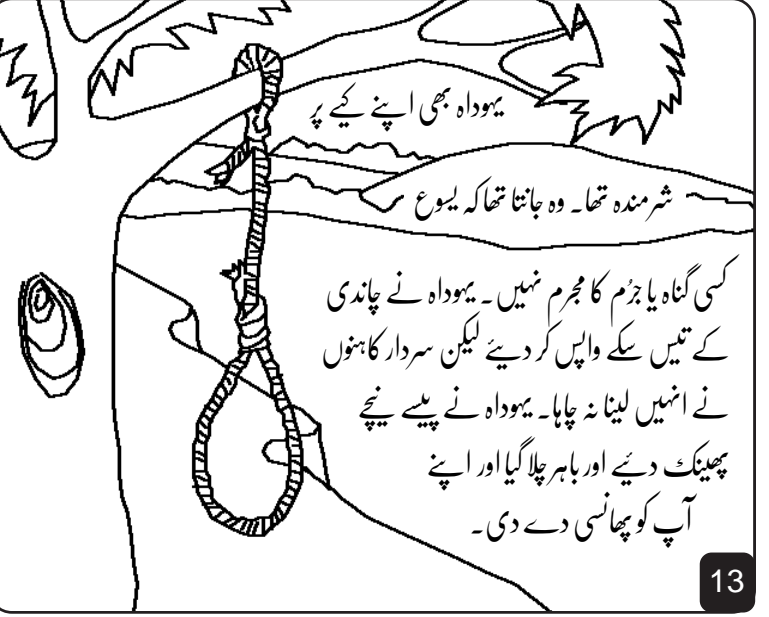 یہوداہ بھی اپنے کیے پر
شرمندہ تھا۔ وہ جانتا تھا کہ یسوع
کسی گناہ یا جرُم کا مجرم نہیں۔ یہوداہ نے چاندی
کے تیس سکے واپس کر دیئے لیکن سردار کاہنوں
نے انہیں لینا نہ چاہا۔ یہوداہ نے پیسے نیچے
پھینک دئیے اور باہر چلا گیا اور اپنے
آپ کو پھانسی دے دی۔
13